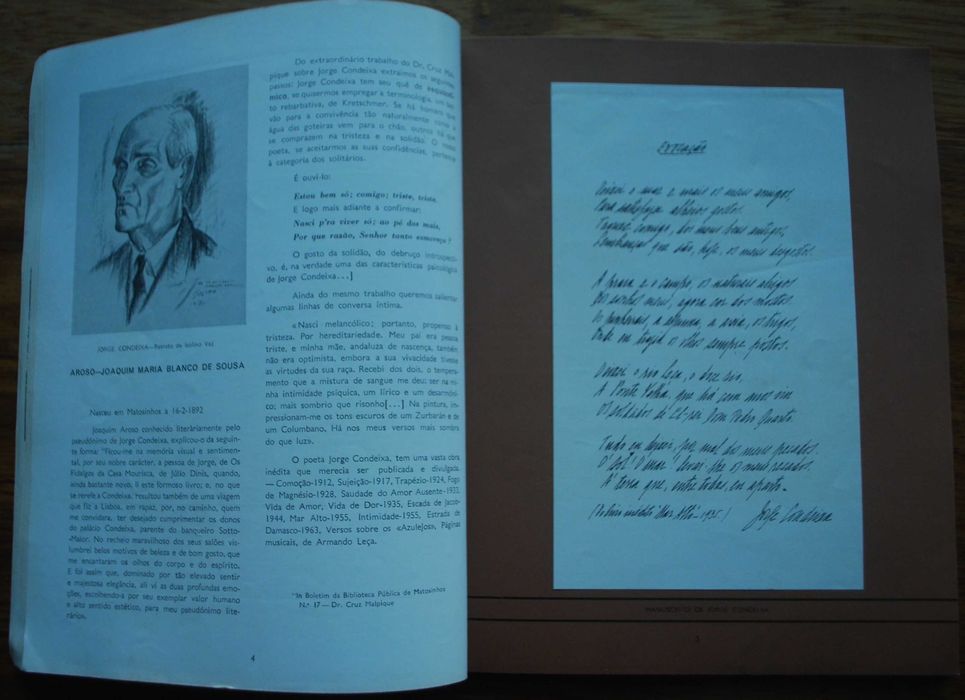 JORGE CONDEIXA—Retrato de Isolino Vaz
AROSO—JOAQUIM MARIA BLANCO DE SOUSA
Nasceu em Matosinhos a 16-2-1892
Joaquim Aroso conhecido literàriamente pelo
pseudónimo de Jorge Condeixa, explicou-o da seguin-
te forma: "Ficou-me na memória visual e sentimen-
tal, por seu nobre carácter, a pessoa de Jorge, de Os
Fidalgos da Casa Mourisca, de Júlio Dinis, quando,
ainda bastante novo, li este formoso livro; e, no que
se refere a Condeixa, resultou também de uma viagem
que fiz a Lisboa, em rapaz, por, no caminho, quem
me convidara, ter desejado cumprimentar os donos
do palácio Condeixa, parente do banqueiro Sotto-
-Maior. No recheio maravilhoso dos seus salões vis-
lumbrei belos motivos de beleza e de bom gosto, que
me encantaram os olhos do corpo e do espírito.
E foi assim que, dominado por tão elevado sentir
e majestosa elegância, ali vi as duas profundas emo-
ções, escolhendo-a por seu exemplar valor humano
e alto sentido estético, para meu pseudónimo lite-
rário».
Do extraordinário trabalho do Dr. Cruz Mal-
pique sobre Jorge Condeixa extraímos os seguintes
passos: Jorge Condeixa tem seu quê de
mico, se quisermos empregar a terminologia, um
to rebarbativa, de Kretschmer. Se há homens que
vão para a convivência tão naturalmente como a
água das goteiras vem para o chão, outros há que
se comprazem na tristeza e na solidão. O nosso
poeta, se aceitarmos as suas confidências, pertence
à categoria dos solitários.
É ouvi-lo:
Estou bem só; comigo; triste, triste.
E logo mais adiante a confirmar:
Nasci p'ra viver só; ao pé dos mais,
Por que razão, Senhor tanto esmoreço?
O gosto da solidão, do debruço introspecti-
vo, é, na verdade uma das características psicológicas
de Jorge Condeixa...]
Ainda do mesmo trabalho queremos salientar
algumas linhas de conversa íntima.
«Nasci melancólico; portanto, propenso à
tristeza. Por hereditariedade. Meu pai era pessoa
triste, e minha mãe, andaluza de nascença, também
não era optimista, embora a sua vivacidade tivesse
as virtudes da sua raça. Recebi dos dois, o tempera-
mento que a mistura de sangue me deu: ser na mi-
nha intimidade psíquica, um lírico e um desarmóni-
co; mais sombrio que risonho[...] Na pintura, im-
pressionam-me os tons escuros de um Zurbarán e de
um Columbano. Há nos meus versos mais sombra
do que luz».
O poeta Jorge Condeixa, tem uma vasta obra
inédita que merecia ser publicada e divulgada.
— Comoção-1912, Sujeição-1917, Trapézio-1924, Fogo
de Magnésio-1928, Saudade do Amor Ausente-1933,
Vida de Amor, Vida de Dor-1935, Escada de Jacob-
1944, Mar Alto-1955, Intimidade-1955, Estrada de
Damasco-1963, Versos sobre os «Azulejos», Páginas
musicais, de Armando Leça.
"In Boletim da Biblioteca Pública de Matosinhos
N.º 17 — Dr. Cruz Malpique
4
Evocação
o mar e mais os meus amigos,
Para satisfazer gostos.
comigo, dos meus bens antigos,
Lembranças que são, hoje, os meus desgostos.
A praia e o campo, os naturais abrigos
Dos sonhos meus, agora cor dos mostos.
Os a a os trigos,
os olhos sempre postos.
o rio Leça, o doce rio,
A Ponte Velha, que
Os soldados de Dom Pedro Quarto.
Tudo eu louvo, mal dos meus pecados.
O Sol! O mar! os meus
A terra que, entre todas, eu aparto.
1935)
Jorge Condeixa
MANUSCRITO DE JORGE CONDEIXA
5